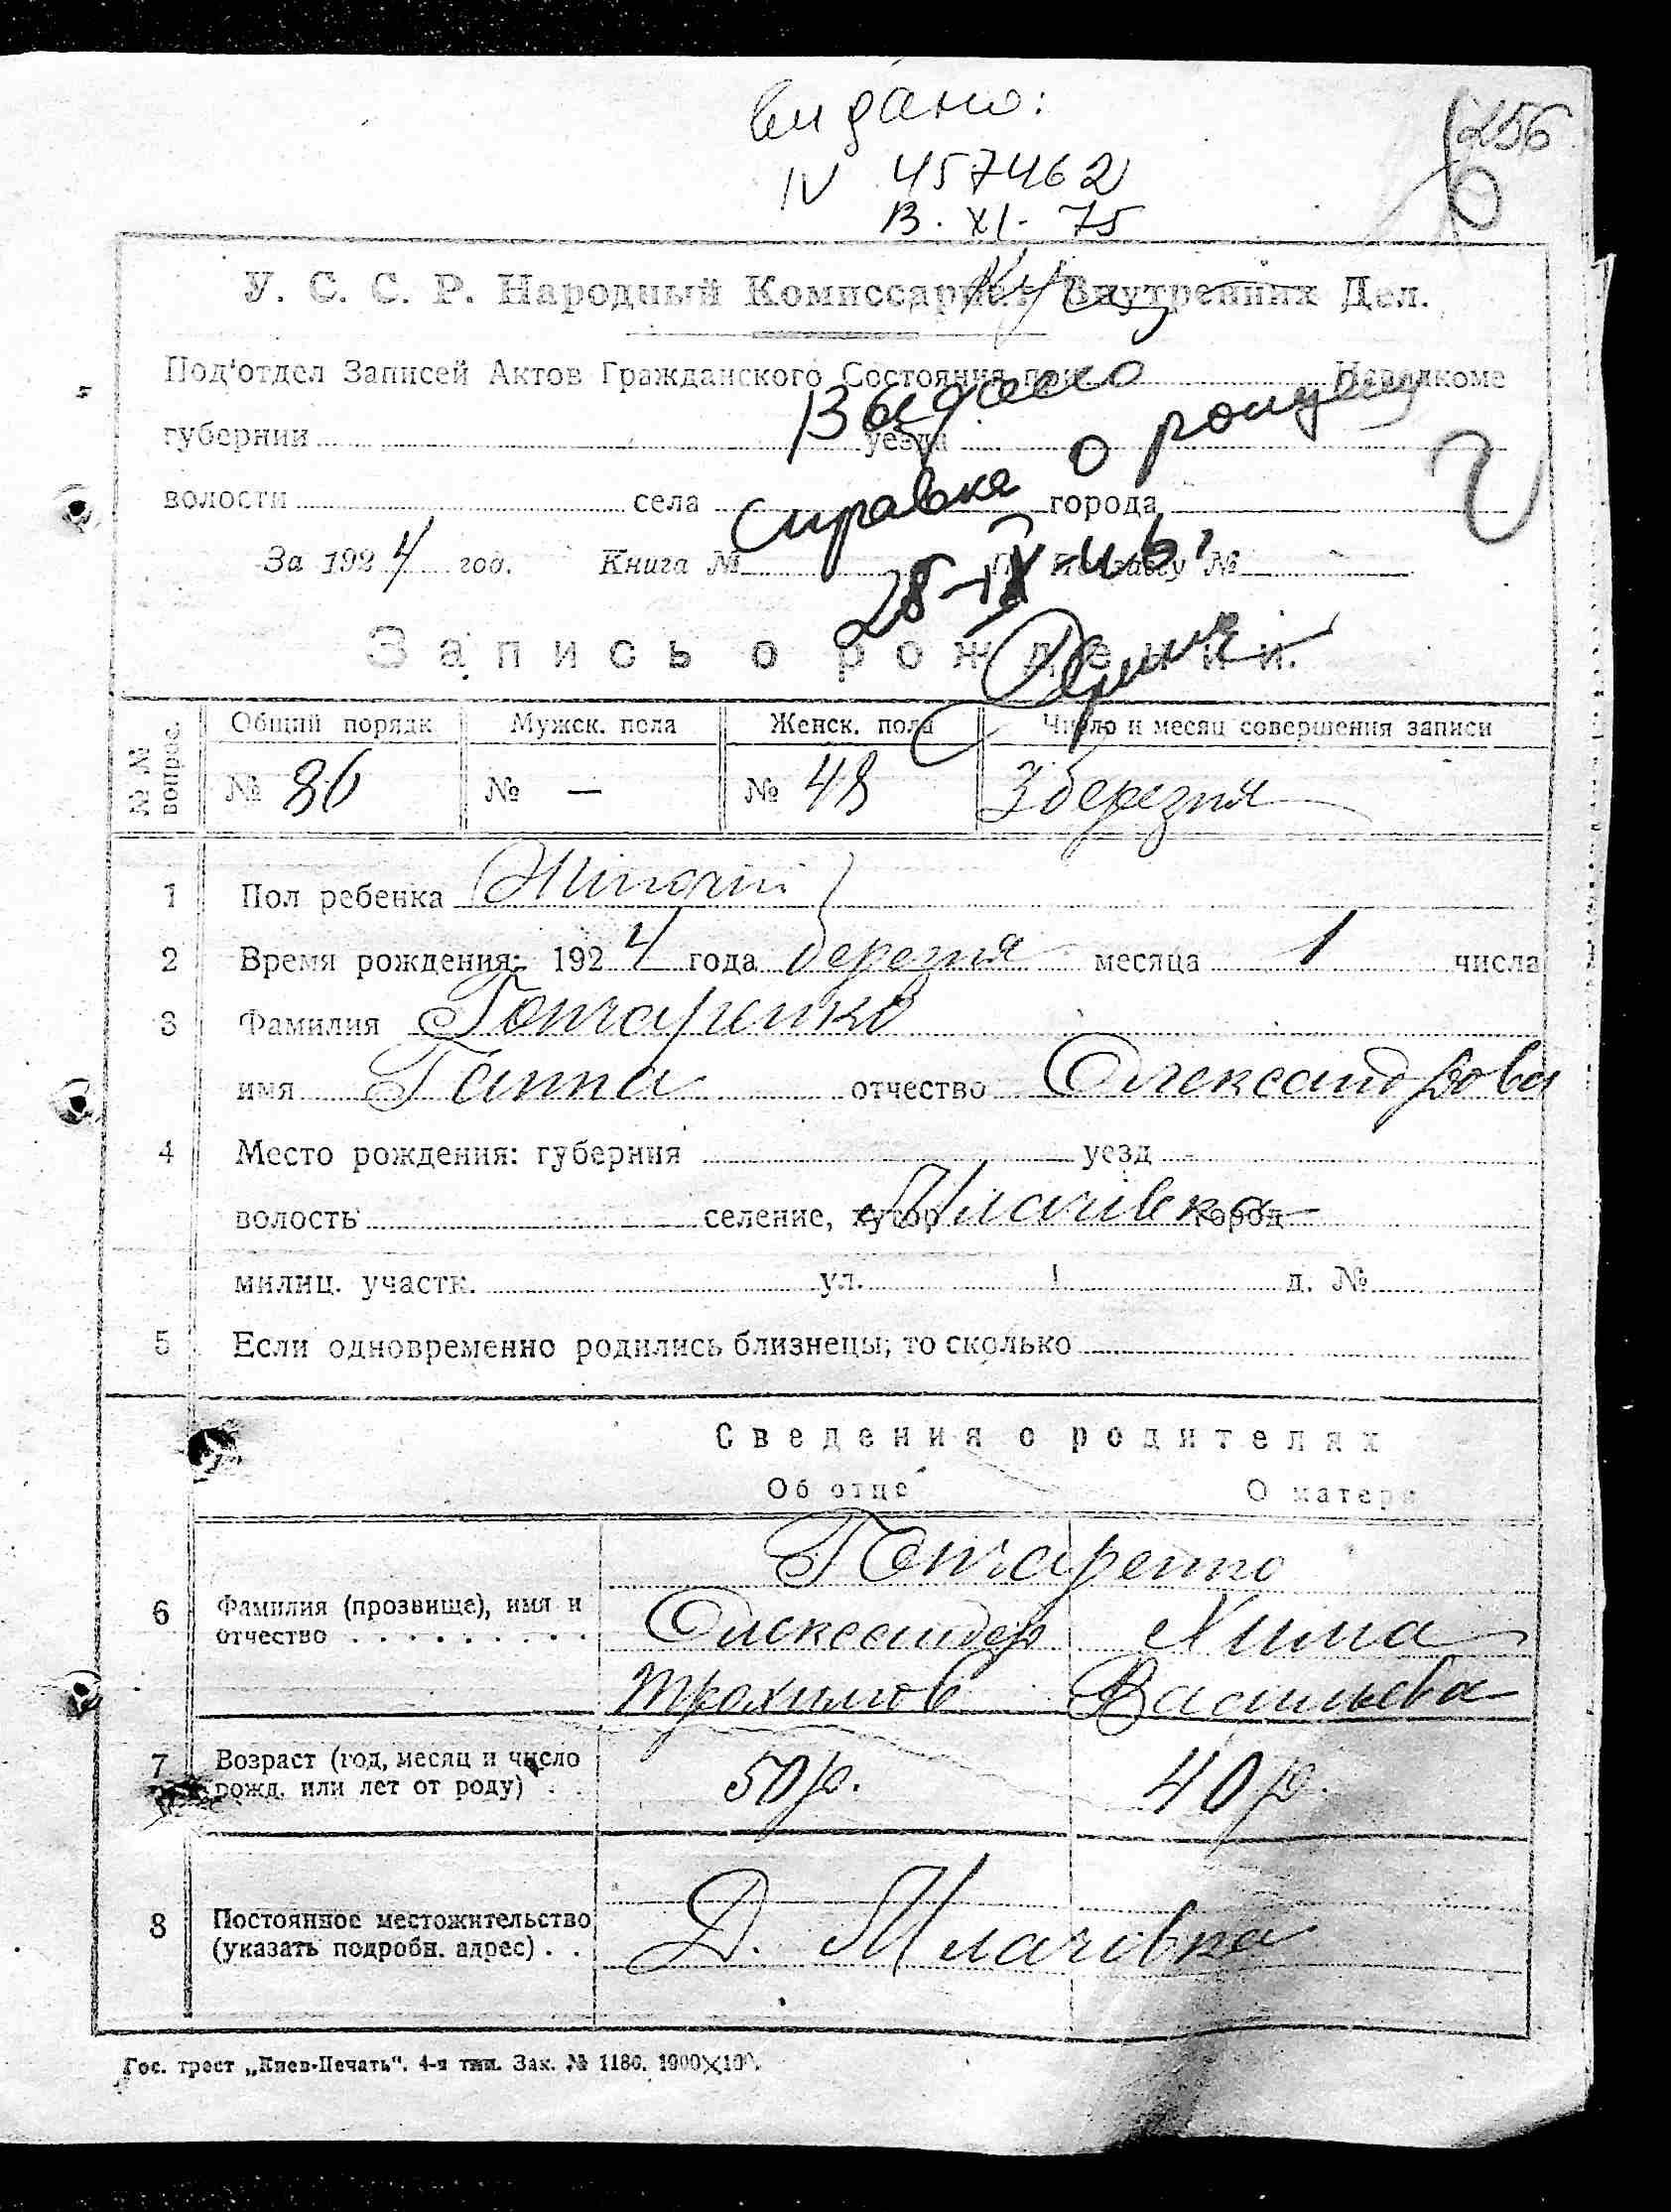 видано:
256
IV 457462
13. XI. 75
У. С. С. Р. Народный Комиссариат Внутренних Дел.
Под'отдел Записей Актов Гражданского Состояния при
Выдано
губернии уезда
справка о рожден
волости села города
За 1924 год. Книга №
28-IX-46,
Запись о рождении.
№№ вопрос. Общий порядк Мужск. пола Женск. пола Число и месяц совершения записи
№ 86 № — № 48 3 березня
1 Пол ребенка Жіночій
2 Время рождения: 1924 года березня месяца 1 числа
3 Фамилия Гончаренко
имя Ганна отчество Олександрова
4 Место рождения: губерния уезд
волость селение, хутор Млачівка город
милиц. участк. ул. д. №
5 Если одновременно родились близнецы, то сколько
Сведения о родителях
Об отце О матери
Гончаренко
6 Фамилия (прозвище), имя и отчество . . . . . . . . . Олександер Хима
Трохимов Васильева
7 Возраст (год, месяц и число рожд. или лет от роду) . . 50 р. 40 р.
8 Постоянное местожительство (указать подробн. адрес) . . Д. Млачовка
Гос. трест „Киев-Печать". 4-я тип. Зак. № 1180. 1000×100.